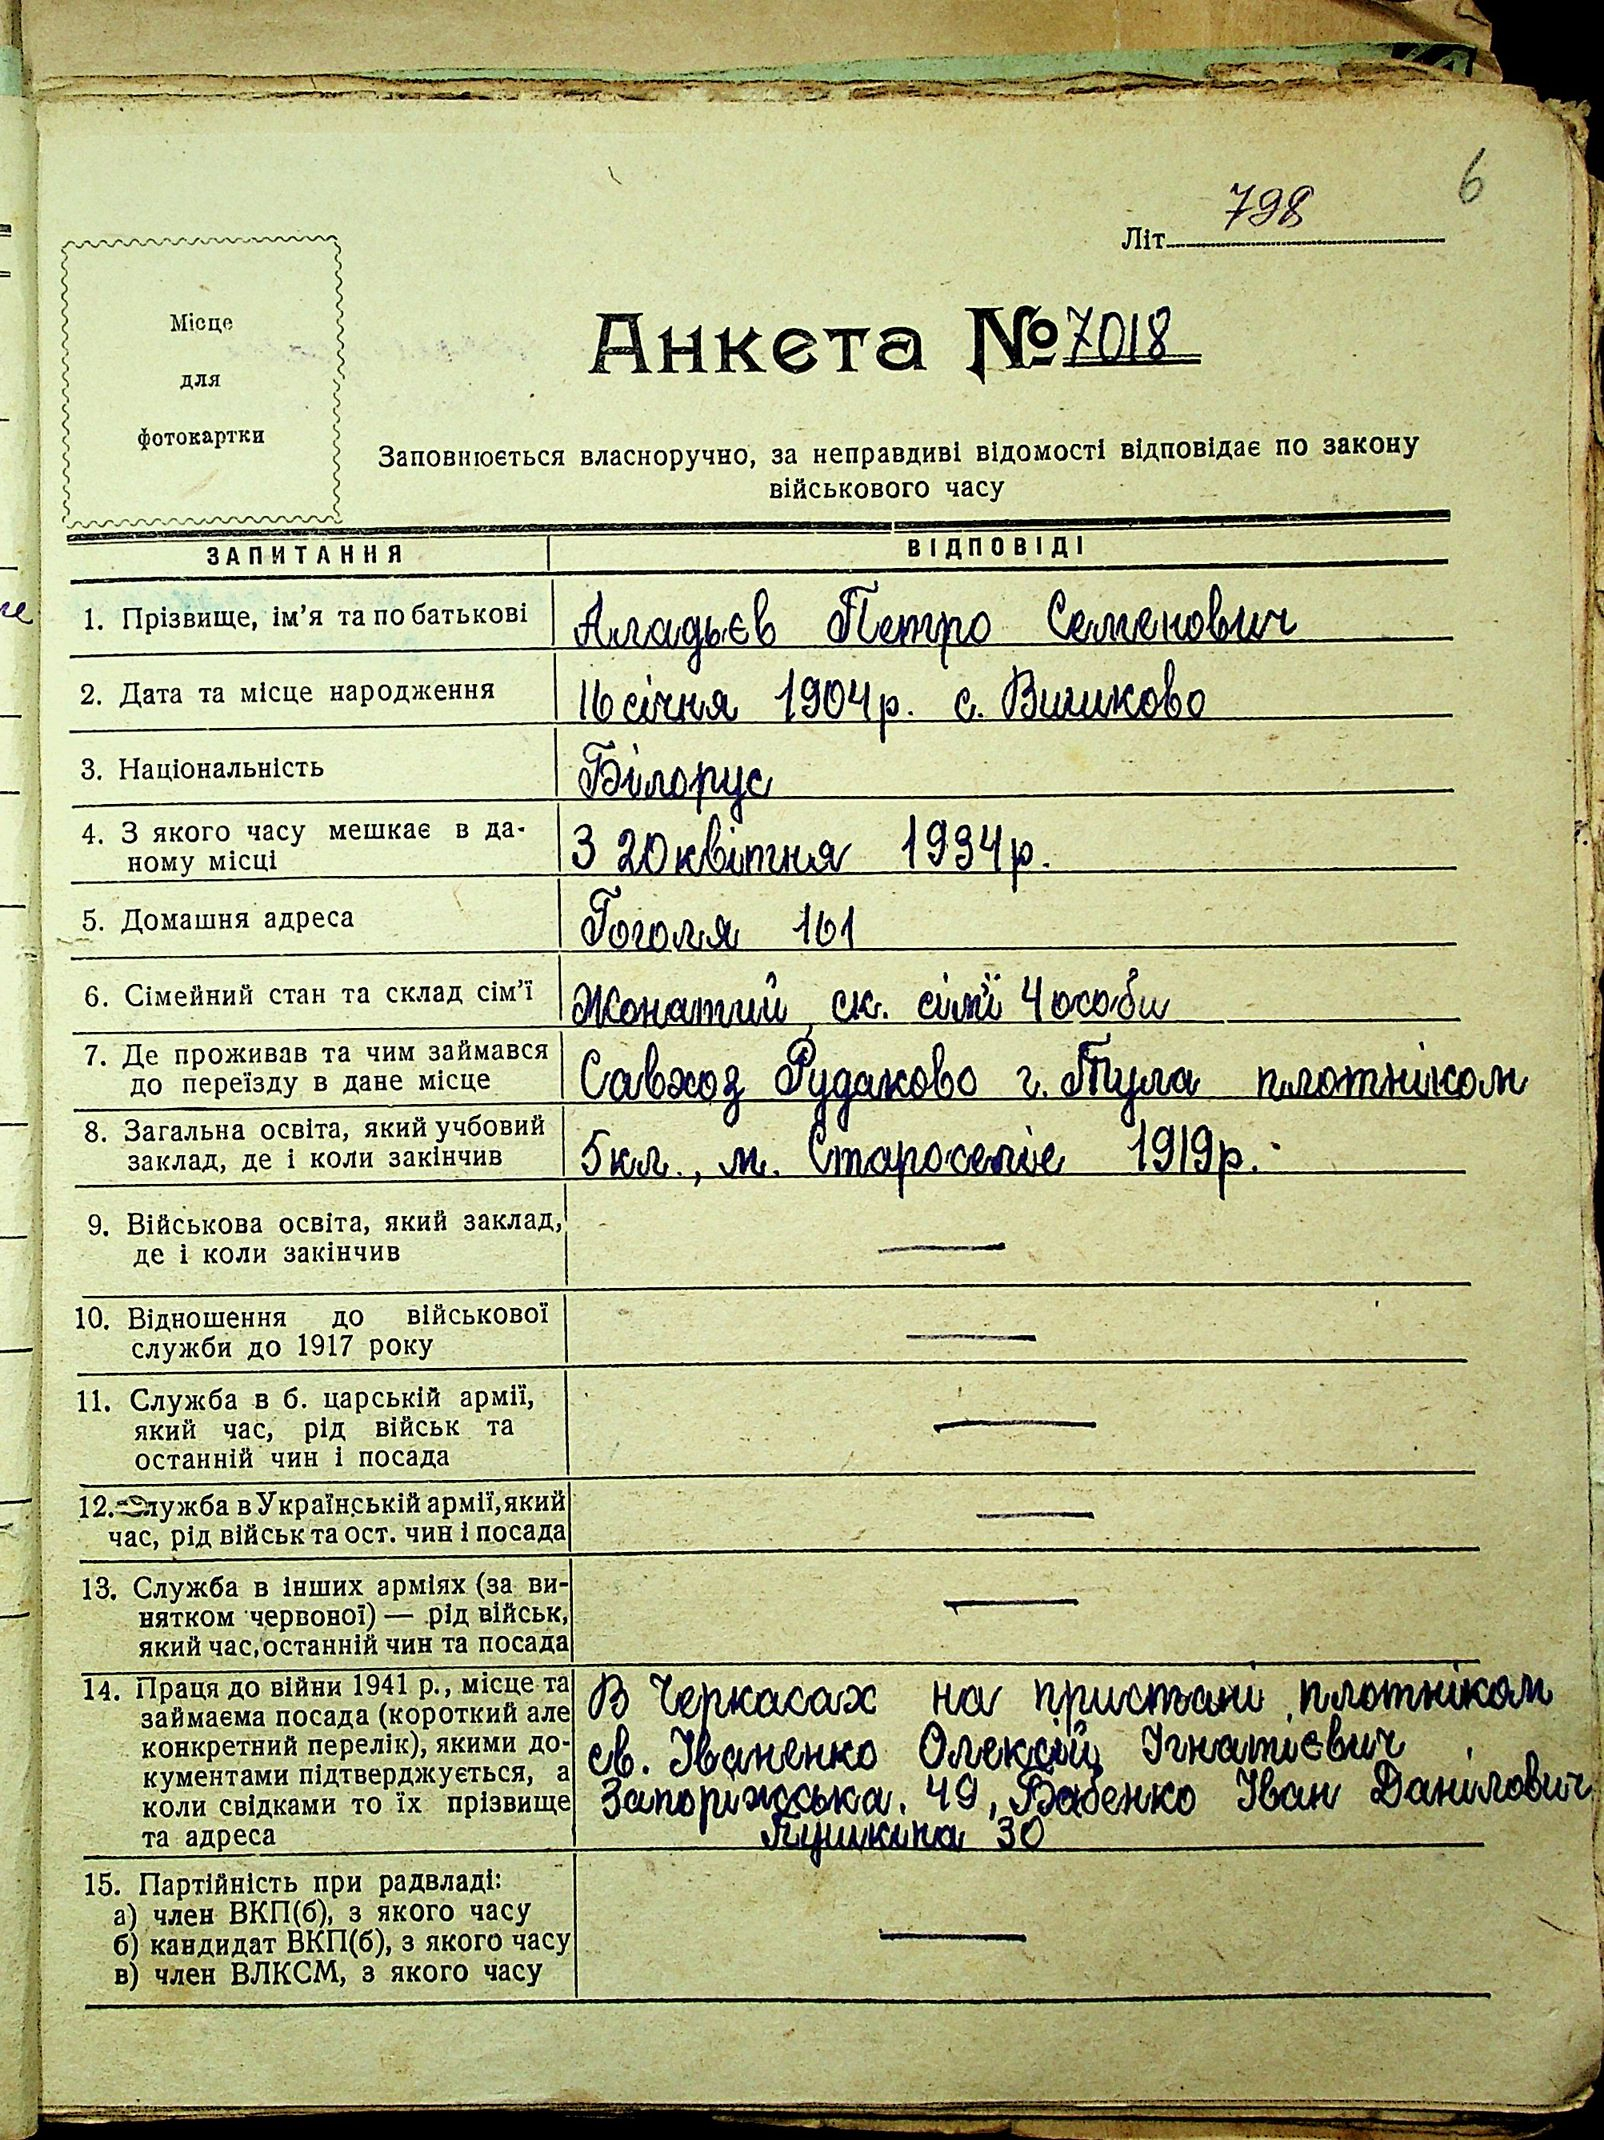 6
Літ. 798
Місце
для
фотокартки
Анкета № 7018
Заповнюється власноручно, за неправдиві відомості відповідає по закону
військового часу
ЗАПИТАННЯ ВІДПОВІДІ
1. Прізвище, ім'я та по батькові Аладьєв Петро Семенович
2. Дата та місце народження 16 січня 1904 р. с. Вишково
3. Національність Білорус
4. З якого часу мешкає в да-
ному місці З 20 квітня 1934 р.
5. Домашня адреса Гоголя 161
6. Сімейний стан та склад сім'ї Жонатий, ск. сім'ї 4 особи
7. Де проживав та чим займався
до переїзду в дане місце Савхоз Рудаково г. Тула плотніком
8. Загальна освіта, який учбовий
заклад, де і коли закінчив 5 кл., м. Староселіе 1919 р.
9. Військова освіта, який заклад,
де і коли закінчив —
10. Відношення до військової
служби до 1917 року —
11. Служба в б. царській армії,
який час, рід військ та
останній чин і посада —
12. Служба в Українській армії, який
час, рід військ та ост. чин і посада —
13. Служба в інших арміях (за ви-
нятком червоної) — рід військ,
який час, останній чин та посада —
14. Праця до війни 1941 р., місце та В Черкасах на пристані плотніком
займаєма посада (короткий але
конкретний перелік), якими до- св. Іваненко Олексій Ігнатієвич
кументами підтверджується, а
коли свідками то їх прізвище Запоріжська. 49, Бабенко Іван Данілович
та адреса Пушкіна 30
15. Партійність при радвладі:
а) член ВКП(б), з якого часу
б) кандидат ВКП(б), з якого часу —
в) член ВЛКСМ, з якого часу